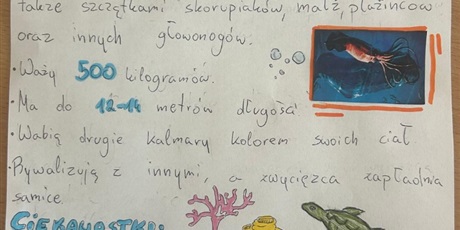 także szczątkami skorupiaków, małż, płazińców
oraz innych głowonogów.
• Waży 500 kilogramów.
• Ma do 12-14 metrów długości
• Wabią drugie kalmary kolorem swoich ciał
• Rywalizują z innymi, a zwycięzca zapładnia
samice
CIEKAWOSTKI: